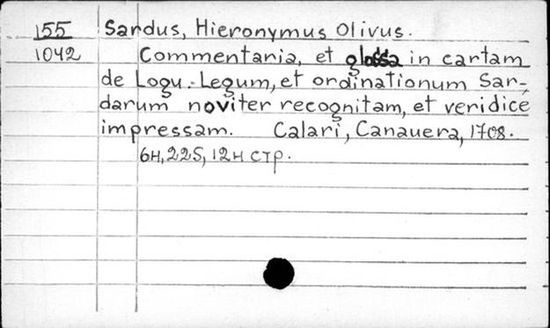 155 Sardus, Hieronymus Olivus.
1042 Commentaria, et glossa in cartam
de Logu. Legum, et ordinationum Sar-
darum noviter recognitam, et veridice
impressam. Calari, Canauera, 1708.
6н, 225, 12н стр.